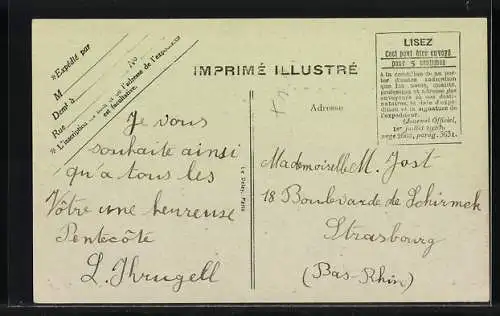 *Expédié par
M
No
Dont à
Rue
*L'inscription du nom et de l'adresse de l'expéditeur
est facultative.
IMPRIMÉ ILLUSTRÉ
LISEZ
Ceci peut être envoyé
pour 5 centimes
A la condition de ne porter d'autre indication que les nom, qualité, profession et adresse des envoyeurs et des destinataires, la date d'expédition et la signature de l'expéditeur.
(Journal Officiel,
page 3603, parag. 3631.
Adresse
Je vous
souhaite ainsi
qu'a tous les
Vôtre une heureuse
Pentecôte
Le Deley, Paris
Mademoiselle M. Jost
18 Boulevard de Schirmek
Strasbourg
(Bas-Rhin)